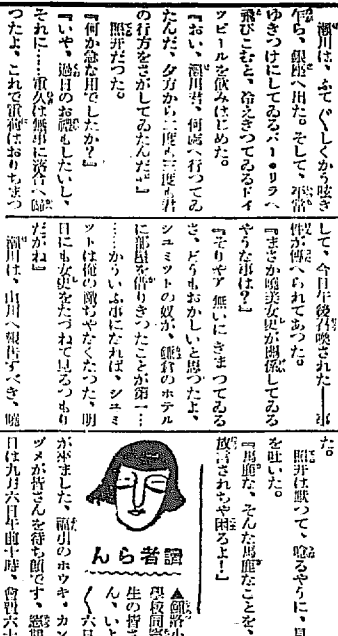 瀬川は、ふてぐしくかう呟き
乍ら、銀座へ出た。そして、平常
ゆきつけにしてゐるバー・リラへ
飛びこむと、冷えきつてゐるドイ
ツビールを飲みはじめた。
『おい、瀬川君、何處へ行つてゐ
たんだ、夕方から二度も三度も君
の行方をさがしてゐたんだぜ』
照井だつた。
『何か急な用でしたか?』
『いや、過日のお禮もしたいし、
それに……重久は無事に落合へ歸
つたよ、これで重荷はおりちまつ
して、今日午後召喚された――事
件が傳へられてあつた。
『まさか曉美女史が關係してゐる
やうな事は?』
『そりやア無いにきまつてゐる
さ、どうもおかしいと思つたよ、
シユミットの奴が、鎌倉のホテル
に部屋を借りきつたことが第一…
……かういふ事になれば、シユミ
ットは俺の敵ぢやなくなつた、明
日にも女史をたづねて見るつもり
だがね』
瀬川は、山川へ報告すべき、曉
た。
照井は默つて、唸るやうに、息
を吐いた。
『馬鹿な、そんな馬鹿なことを、
放言されちや困るよ!』
讀者らん
▲釧路小
學校同窓
生の皆さ
ん、いよ
く六日
が來ました、福引のホウキ・カン
ヅメが皆さんを待ち顔です、懇親
日は九月六日午前十時、會費六十